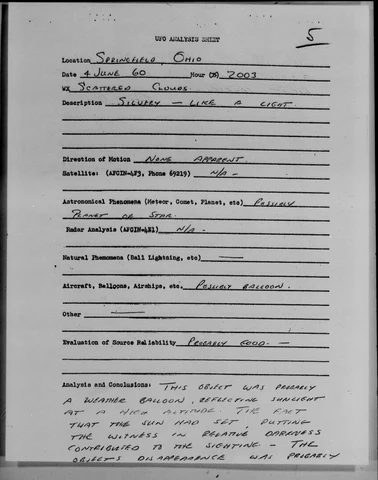 5
UFO ANALYSIS SHEET
Location SPRINGFIELD, OHIO
Date 4 JUNE 60 Hour (Z) 2003
WX SCATTERED CLOUDS
Description SILVERY — LIKE A LIGHT.
Direction of Motion NONE APPARENT.
Satellite: (AFCIN-4F3, Phone 69219) N/A -
Astronomical Phenomena (Meteor, Comet, Planet, etc) POSSIBLY
PLANET OR STAR.
Radar Analysis (AFCIN-4E1) N/A -
Natural Phenomena (Ball Lightning, etc) —
Aircraft, Balloons, Airships, etc. POSSIBLY BALLOON.
Other —
Evaluation of Source Reliability PROBABLY GOOD. —
Analysis and Conclusions: THIS OBJECT WAS PROBABLY
A WEATHER BALLOON, REFLECTING SUNLIGHT
AT A HIGH ALTITUDE. THE FACT
THAT THE SUN HAD SET, PUTTING
THE WITNESS IN RELATIVE DARKNESS
CONTRIBUTED TO THE SIGHTING. - THE
OBJECTS DISAPPEARANCE WAS PROBABLY